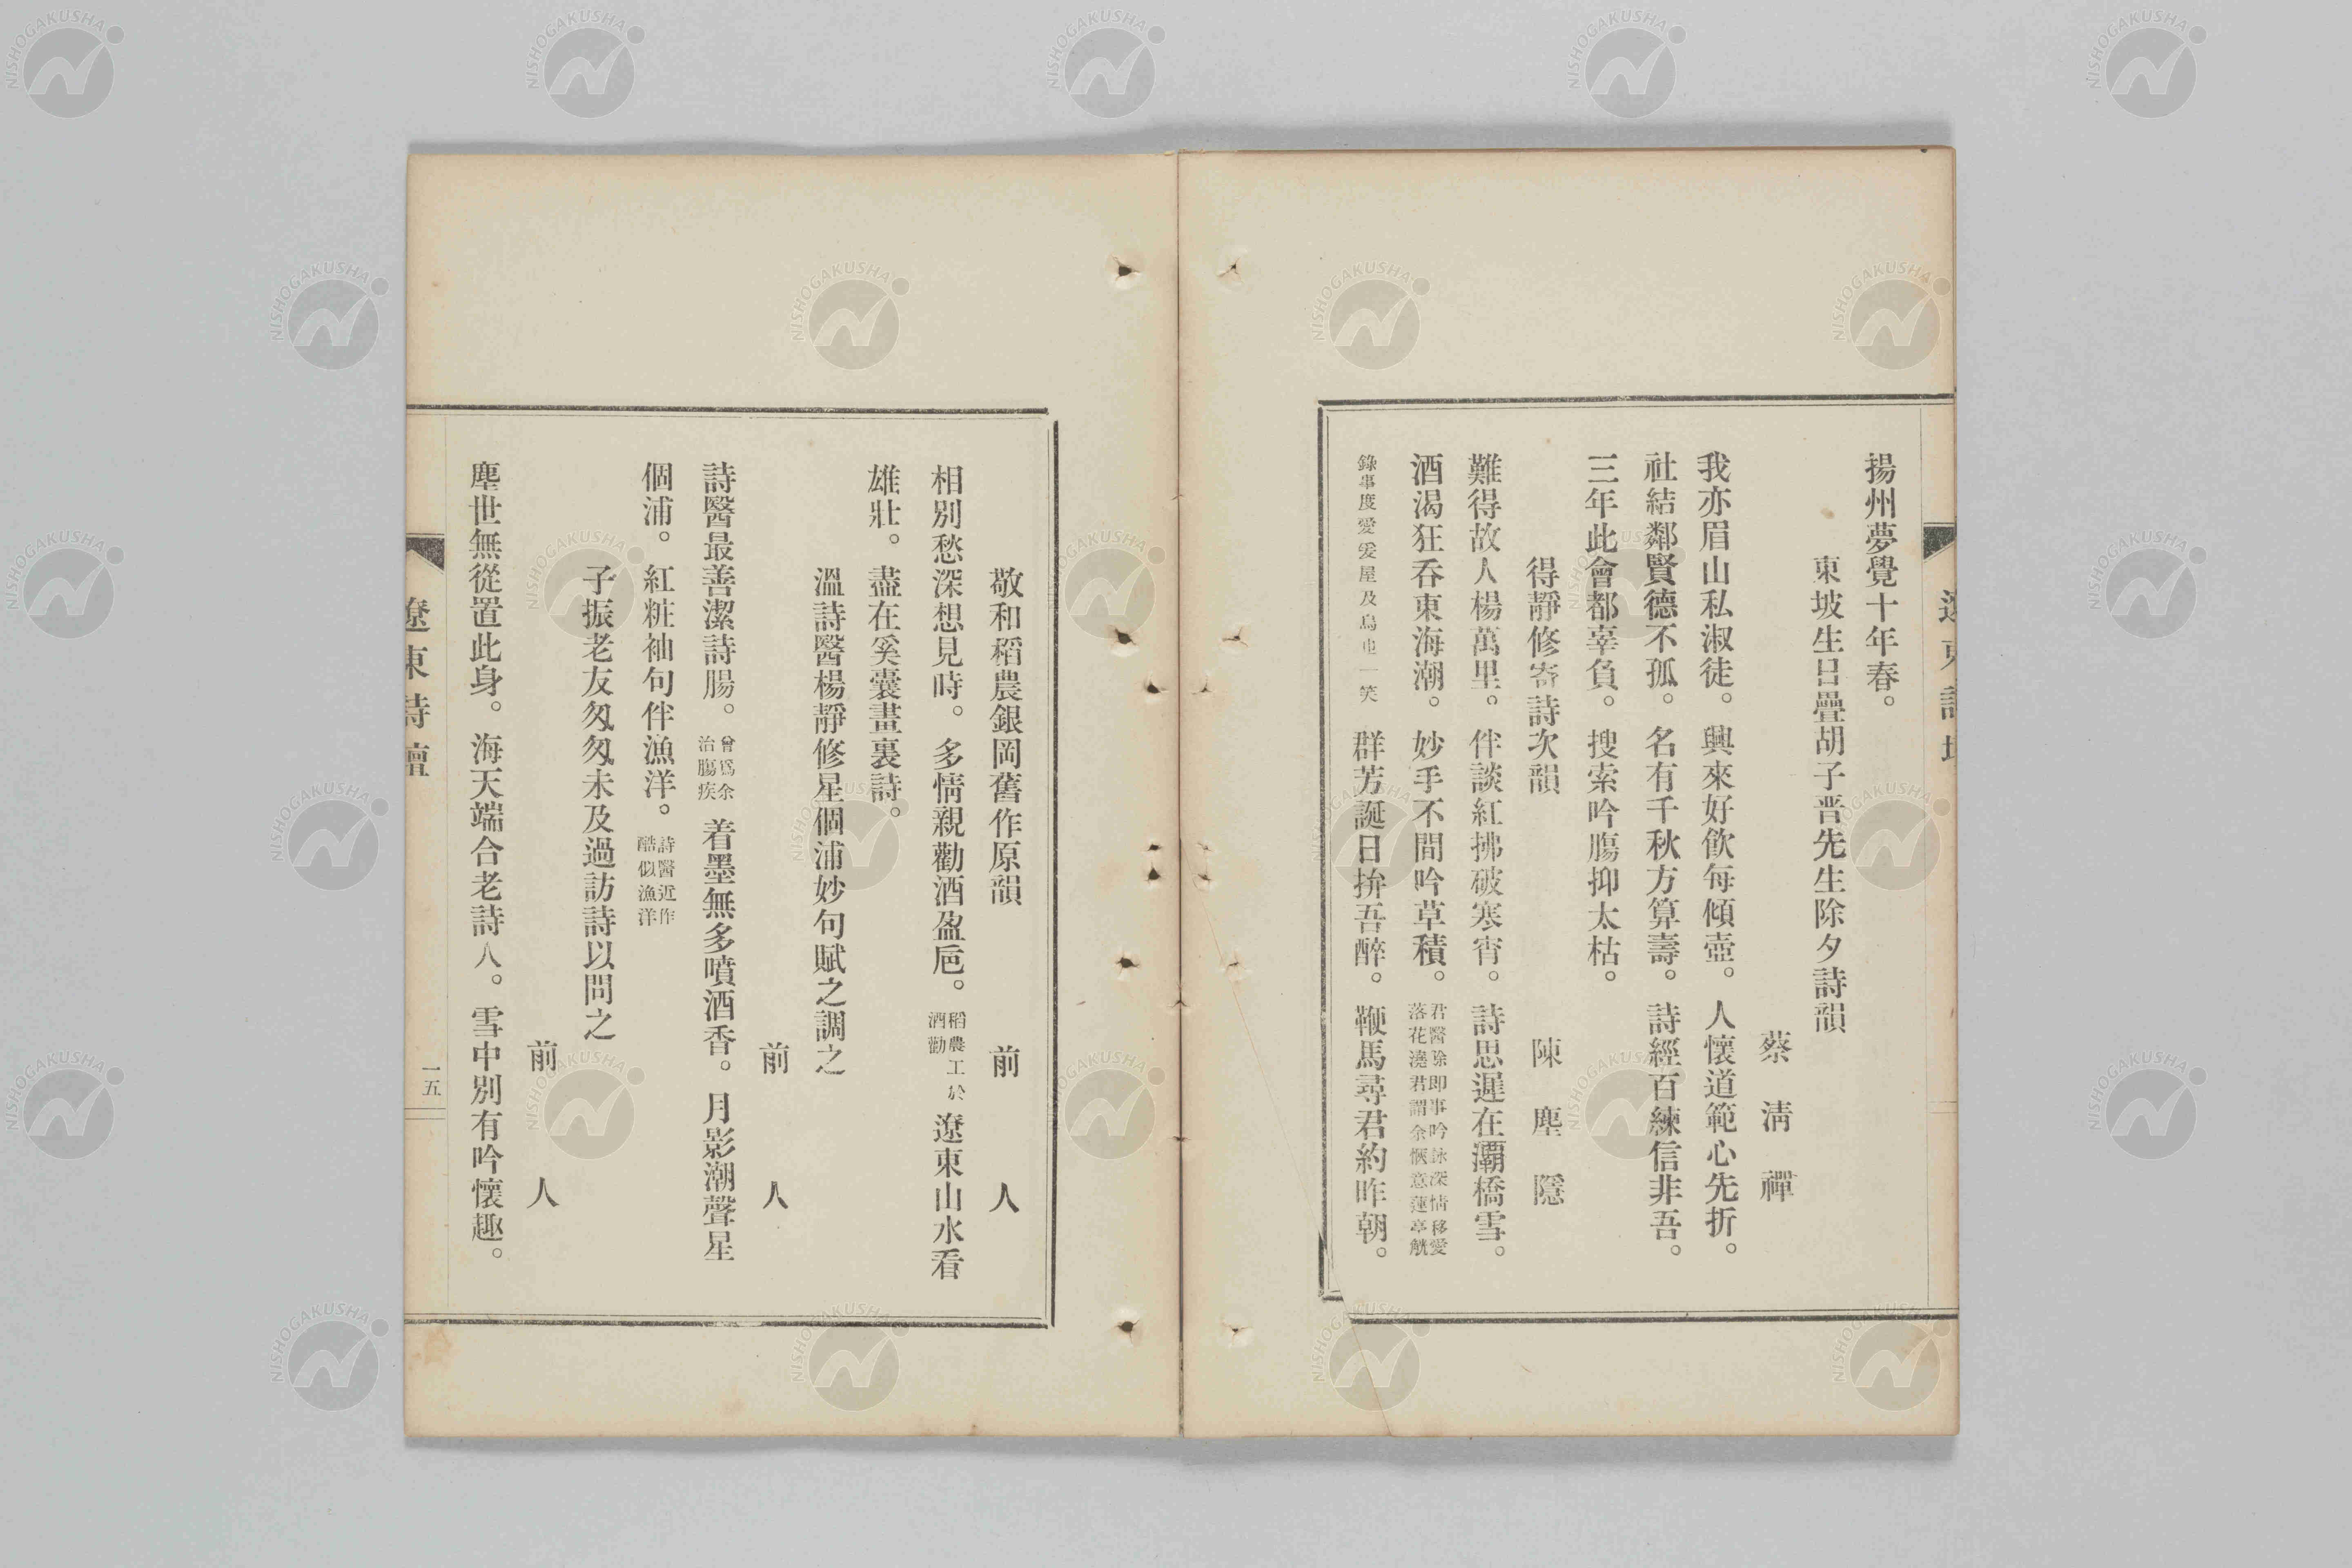 揚州夢覺十年春。
東坡生日疊胡子晋先生除夕詩韻
蔡淸禪
我亦眉山私淑徒。興來好飮每傾壺。人懷道範心先折。
社結鄰賢德不孤。名有千秋方算壽。詩經百練信非吾。
三年此會都辜負。搜索吟膓抑太枯。
得靜修寄詩次韻
陳塵隱
難得故人楊萬里。伴談紅拂破寒宵。詩思遲在灞橋雪。
酒渴狂吞東海潮。妙手不間吟草積。
君醫除即事吟詠深情移愛
落花澆君謂余愜意蓮亭觥
錄事度愛爰屋及烏也一笑
群芳誕日拚吾醉。鞭馬尋君約昨朝。
遼東詩壇
敬和稻農銀岡舊作原韻
前人
相別愁深想見時。多情親勸酒盈巵。
稻農工於
酒勸
遼東山水看
雄壯。盡在奚囊畫裏詩。
溫詩醫楊靜修星個浦妙句賦之調之
前人
詩醫最善潔詩腸。
曾爲余
治膓疾
着墨無多噴酒香。月影潮聲星
個浦。紅粧袖句伴漁洋。
詩醫近作
酷似漁洋
子振老友匆匆未及過訪詩以問之
前人
塵世無從置此身。海天端合老詩人。雪中別有吟懷趣。
遼東詩壇
一五
NISHOGAKUSHA